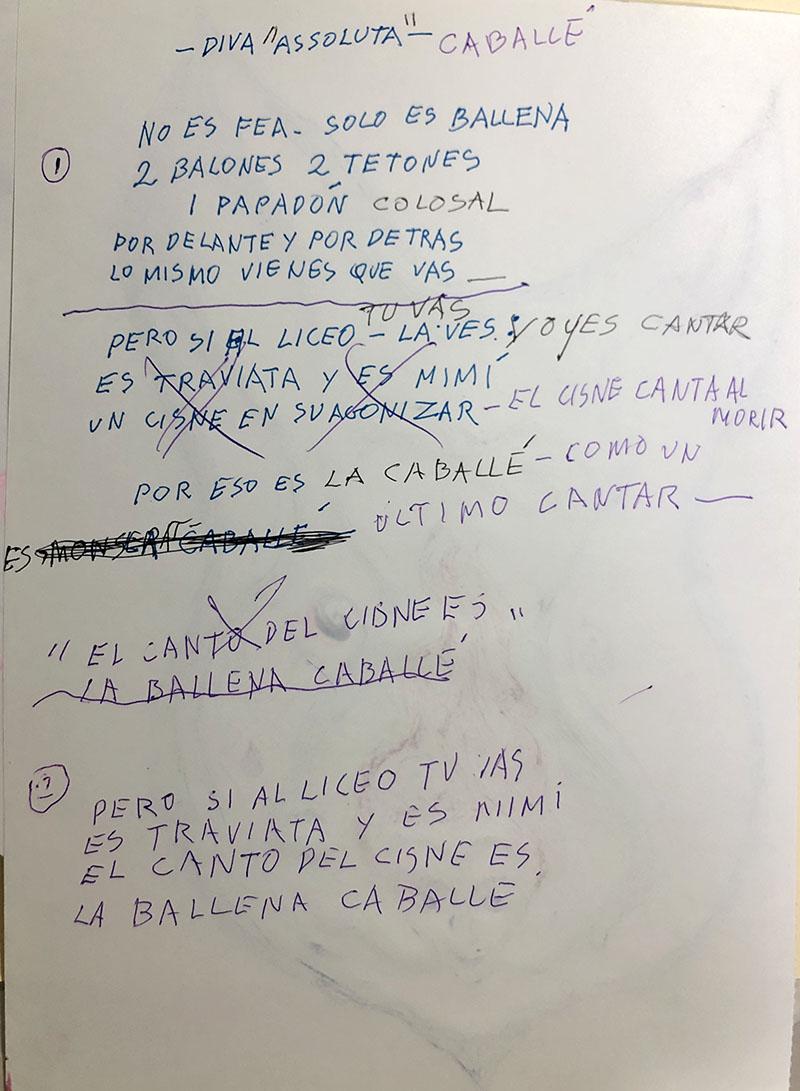 — DIVA "ASSOLUTA" — CABALLÉ
NO ES FEA. SOLO ES BALLENA
① 2 BALONES 2 TETONES
1 PAPADOÑ COLOSAL
POR DELANTE Y POR DETRAS
LO MISMO VIENES QUE VAS —
TU VAS
PERO SI AL LICEO — LA VES. Y OYES CANTAR
ES TRAVIATA Y ES MIMÍ
UN CISNE EN SU AGONIZAR — EL CISNE CANTA AL
MORIR
POR ESO ES LA CABALLÉ — COMO UN
ULTIMO CANTAR —
ES MONSERAT CABALLÉ
"EL CANTO DEL CISNE ES"
LA BALLENA CABALLÉ
PERO SI AL LICEO TU VAS
ES TRAVIATA Y ES MIMÍ
EL CANTO DEL CISNE ES
LA BALLENA CABALLÉ